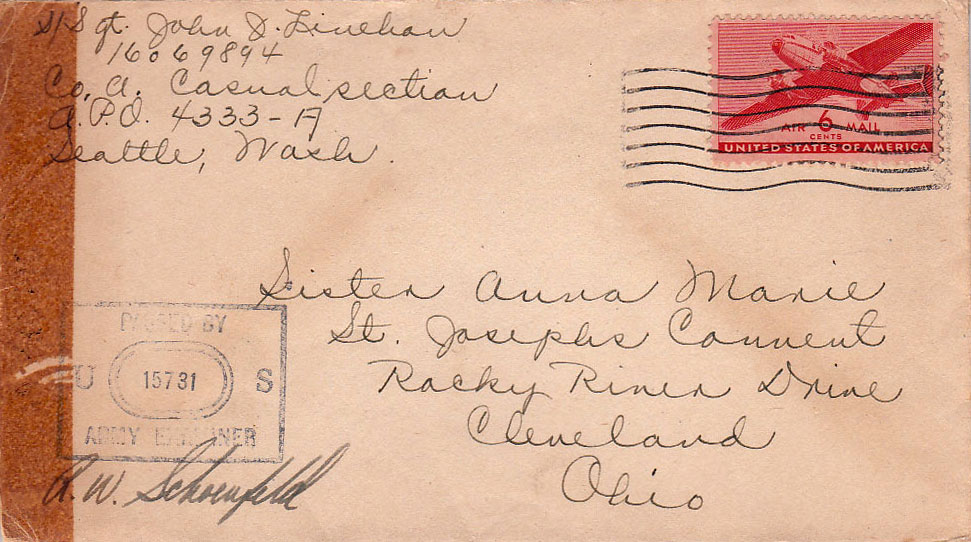 S/Sgt. John J. Linehan
16069894
Co. A. Casual section
A.P.O. 4333-A
Seattle, Wash.
AIR 6 MAIL
CENTS
UNITED STATES OF AMERICA
Sister Anna Marie
St. Josephs Convent
Rocky River Drive
Cleveland
Ohio
PASSED BY
U 15731 S
ARMY EXAMINER
A. W. Schoenfeld